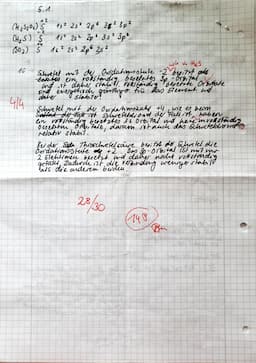 5.1
1s² 2s² 2p⁶ 3s² 3p²
(H₂S) S 1s² 2s² 2p⁶ 3s² 3p⁶
(SO₂) S 1s² 2s² 2p⁶ 3s²
Schwefel mit der Oxidationszahl -2 besitzt als
ein vollständig besetztes 3p-Orbital
und ist daher stabil, vollständig besetzte Orbitale
sind energetisch günstiger für das Element und
daher stabiler.
4/4
Schwefel mit der Oxidationszahl +4, wie es beim
der Fall ist, haben
ein vollständig besetztes s Orbital und keine unvollständig
besetzten Orbitale, darum ist auch das Schwefeldioxid
relativ stabil.
Bei der Thioschwefelsäure besitzt der Schwefel die
Oxidationsstufe +2. Das 3p-Orbital ist mit nur
2 Elektronen besetzt und daher nicht vollständig
gefüllt. Dadurch ist die Verbindung weniger stabil
als die anderen beiden.
28/30